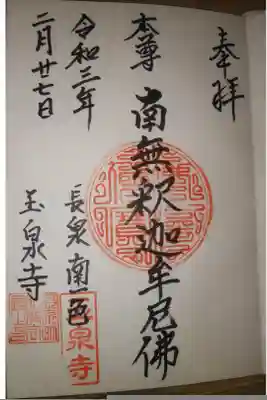 奉拝
本尊
南無釈迦牟尼佛
令和三年
二月廿七日
長泉 南一色
玉泉寺
泉寺